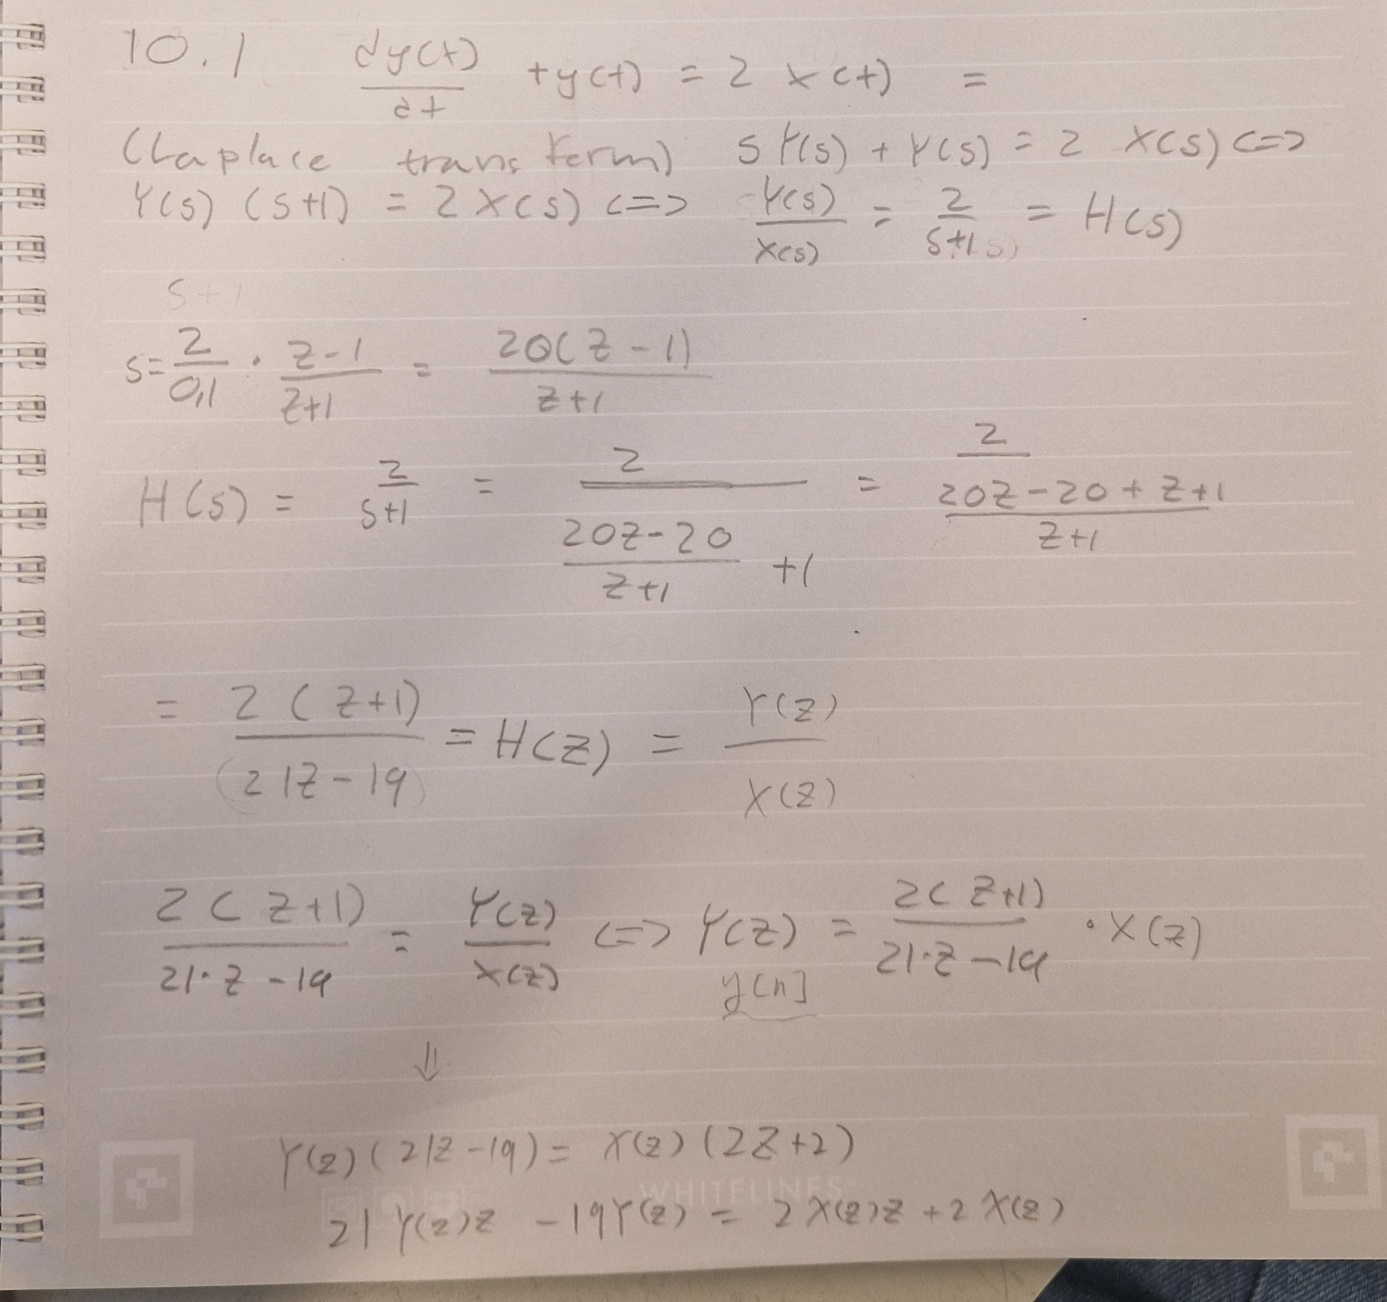 10.1 dy(t)/dt + y(t) = 2 x(t) =
(Laplace transform) sY(s) + Y(s) = 2 X(s) <=>
Y(s) (s+1) = 2X(s) <=> Y(s)/X(s) = 2/(s+1) = H(s)
s+1
s = 2/0,1 · (z-1)/(z+1) = 20(z-1)/(z+1)
H(s) = 2/(s+1) = 2/((20z-20)/(z+1) +1) = 2/((20z-20+z+1)/(z+1))
= 2(z+1)/(21z-19) = H(z) = Y(z)/X(z)
2(z+1)/(21·z-19) = Y(z)/X(z) <=> Y(z) = 2(z+1)/(21·z-19) · X(z)
y[n]
⇓
Y(z)(21z-19) = X(z)(2z+2)
WHITELINES
21Y(z)z - 19Y(z) = 2X(z)z + 2X(z)